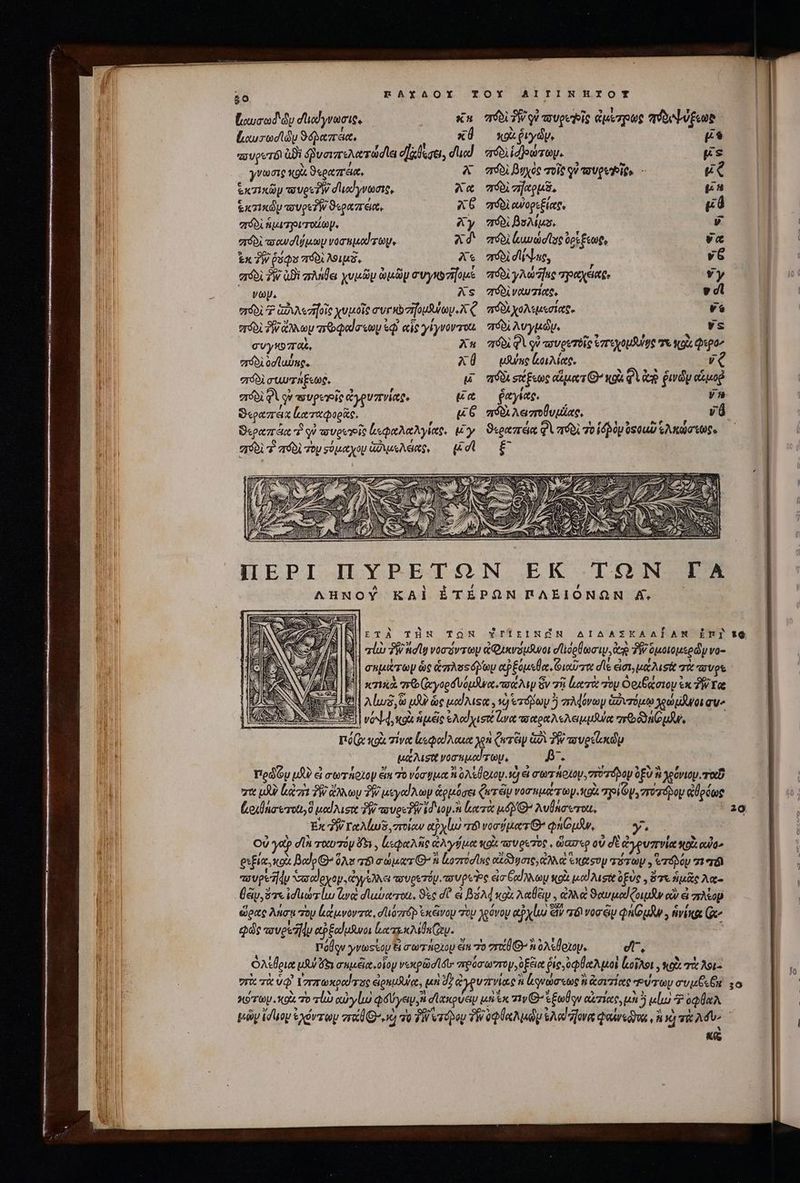 30 ΠΑΥΛΟΥ ΤΟΥ ΑΙΓΙΝΗΤΟΥ
καυσωδῶν διάγνωσις. κη
καυσωδῶν θεραπεία. κθ
γνωσις καὶ θεραπεία. λ
ἑκτικῶν πυρετῶν διάγνωσις. λα
ἑκτικῶν πυρετῶν θεραπεία. λβ
περὶ ἡμιτριταίων. λγ
περὶ πανδήμων νοσημάτων. λδ
ἐκ τῶν ῥούφου περὶ λοιμοῦ. λε
περὶ τῶν ἐπὶ πλήθει χυμῶν ὠμῶν συγκοπτομέ
νων. λς
περὶ τῶν ἐπὶ λεπτοῖς χυμοῖς συγκοπτομένων. λζ
περὶ τῶν ἄλλων προφάσεων ἐφ' αἷς γίγνονται
συγκοπαὶ. λη
περὶ ὀδύνης. λθ
περὶ συντήξεως. μ
περὶ τῆς ἐν πυρετοῖς ἀγρυπνίας. μα
θεραπεία καταφορᾶς. μβ
θεραπεία τῆς ἐν πυρετοῖς κεφαλαλγίας. μγ
περὶ τῆς περὶ τὸν στόμαχον ἐπιμελείας. μδ
περὶ τῆς ἐν πυρετοῖς ἀμέτρου περιψύξεως
καὶ ῥιγῶν. με
περὶ ἱδρώτων. μς
περὶ βηχὸς τοῖς ἐν πυρετοῖς. μζ
περὶ πταρμοῦ. μη
περὶ ἀνορεξίας. μθ
περὶ βολίμου. ν
περὶ κυνώδους ὀρέξεως. να
περὶ δίψης. νβ
περὶ γλώττης τραχείας. νγ
περὶ ναυτίας. νδ
περὶ χολεμεσίας. νε
περὶ λυγμῶν. νς
περὶ τῆς ἐν πυρετοῖς ἐπεχομένης τε καὶ φερο
μένης κοιλίας. νζ
περὶ στέξεως αἵματος καὶ τῆς ἀπὸ ῥινῶν αἱμορ
ῥαγίας. νη
περὶ λειποθυμίας. νθ
θεραπεία τῆς περὶ τὸ ἱερὸν ὀστοῦν ἑλκώσεως.
ξ
ΠΕΡΙ ΠΥΡΕΤΩΝ ΕΚ ΤΩΝ ΓΑ
ΛΗΝΟΥ ΚΑΙ ΕΤΕΡΩΝ ΠΛΕΙΟΝΩΝ Α.
ΜΕΤΑ ΤΗΝ ΤΩΝ ΥΓΙΕΙΝΩΝ ΔΙΔΑΣΚΑΛΙΑΝ ΕΠΙ 10
τὴν τῶν ἤδη νοσούντων ἀφικνούμενοι διόρθωσιν, ἀπὸ τῶν ὁμοιομερῶν νο-
σημάτων ὡς ἁπλουστέρων ἀρξόμεθα. τοιαῦτα δέ εἰσι, μάλιστα τὰ πυρε
κτικὰ προσαγορευόμενα. πάλιν οὖν τῇ κατὰ τὸν Ὀριβάσιον ἐκ τῶν Γα
ληνοῦ, ὦ μὲν ὡς μάλιστα, καὶ ἑτέρων δὲ πλειόνων ἐπιτόμῳ χρώμενοι συ-
νόψει, καὶ ἡμεῖς ἐλάχιστά τινα παραλελειμμένα προσθήσομεν.
Πόσα καὶ τίνα κεφάλαια χρὴ ζητεῖν ἐπὶ τῶν πυρεκτικῶν
μάλιστα νοσημάτων. β.
Πρῶτον μὲν εἰ σωτήριον εἴη τὸ νόσημα ἢ ὀλέθριον. καὶ εἰ σωτήριον, πότερον ὀξὺ ἢ χρόνιον. ταῦ
τα μὲν κἀπὶ τῶν ἄλλων τῶν μεγάλων ἁρμόσει ζητεῖν νοσημάτων. καὶ τρίτον, πότερον ἀθρόως
κριθήσεται, ὃ μάλιστα τῶν πυρετῶν ἴδιον. ἢ κατὰ μέρος λυθήσεται. 20
Ἐκ τῶν Γαληνοῦ, ποίαν ἀρχὴν τοῦ νοσήματος φήσομεν. γ.
Οὐ γὰρ δὴ ταυτόν ἐστι, κεφαλῆς ἄλγημα καὶ πυρετὸς. ὥσπερ οὐ δὲ ἀγρυπνία καὶ ἀνο-
ρεξία, καὶ βάρος ὅλου τοῦ σώματος ἢ κοπώδης αἴσθησις, ἀλλὰ ἕκαστον τούτων, ἕτερόν τι τοῦ
πυρέττειν ὑπάρχον, ἀγγέλλει πυρετόν. πυρετὸς εἰσβάλλων καὶ μάλιστα ὀξὺς, οὔτε ἡμᾶς λα-
θεῖν, οὔτε ἰδιώτην τινὰ δύναται. θὲς δ' εἰ βούλει καὶ λαθεῖν, ἀλλὰ θαυμάζοιμεν ἂν εἰ πλέον
ὥρας λήσῃ τὸν κάμνοντα. διόπερ ἐκεῖνον τὸν χρόνον ἀρχὴν εἶναι τοῦ νοσεῖν φήσομεν, ἡνίκα σα-
φῶς πυρέττειν ἀρξάμενοι κατεκλίθησαν.
Πόθεν γνωστέον εἰ σωτήριον εἴη τὸ πάθος ἢ ὀλέθριον. δ.
Ὀλέθρια μὲν ἐστι σημεῖα. οἷον νεκρῶδες πρόσωπον, ὀξεῖα ῥὶς, ὀφθαλμοὶ κοῖλοι, καὶ τὰ λοι-
πὰ τὰ ὑφ' Ἱπποκράτους εἰρημένα, μὴ δι' ἀγρυπνίας ἢ κενώσεως ἢ ἀσιτίας τούτων συμβεβη 30
κότων. καὶ τὸ τὴν αὐγὴν φεύγειν, ἢ δακρύειν μὴ ἔκ τινος ἔξωθεν αἰτίας, μὴ δὲ μὴν τῶν ὀφθαλ
μῶν ἴδιον ἐχόντων πάθος, καὶ τὸ τῶν ἕτερον τῶν ὀφθαλμῶν ἐλάττονα φαίνεσθαι, ἢ καὶ τὰ λευ-
κὰ